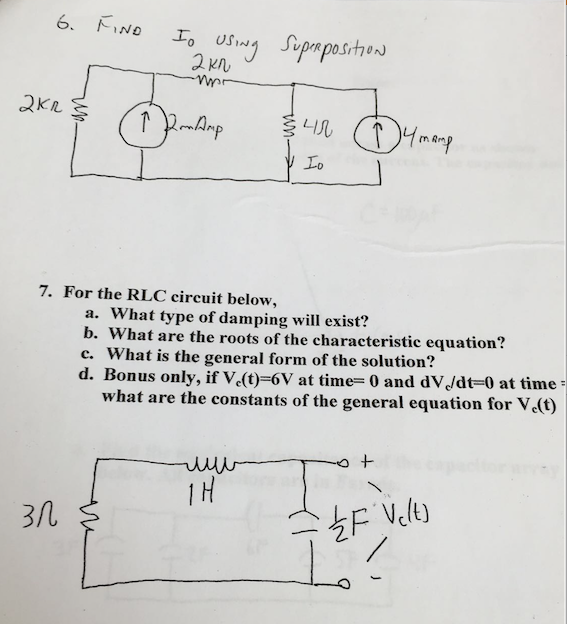 6. FIND Io USING SUPERPOSITION
2KΩ
2KΩ
↑ 2mAmp
4Ω
↑ 4mAmp
Io
7. For the RLC circuit below,
a. What type of damping will exist?
b. What are the roots of the characteristic equation?
c. What is the general form of the solution?
d. Bonus only, if Vc(t)=6V at time= 0 and dVc/dt=0 at time =
what are the constants of the general equation for Vc(t)
+
1H
3Ω
½F Vc(t)
-